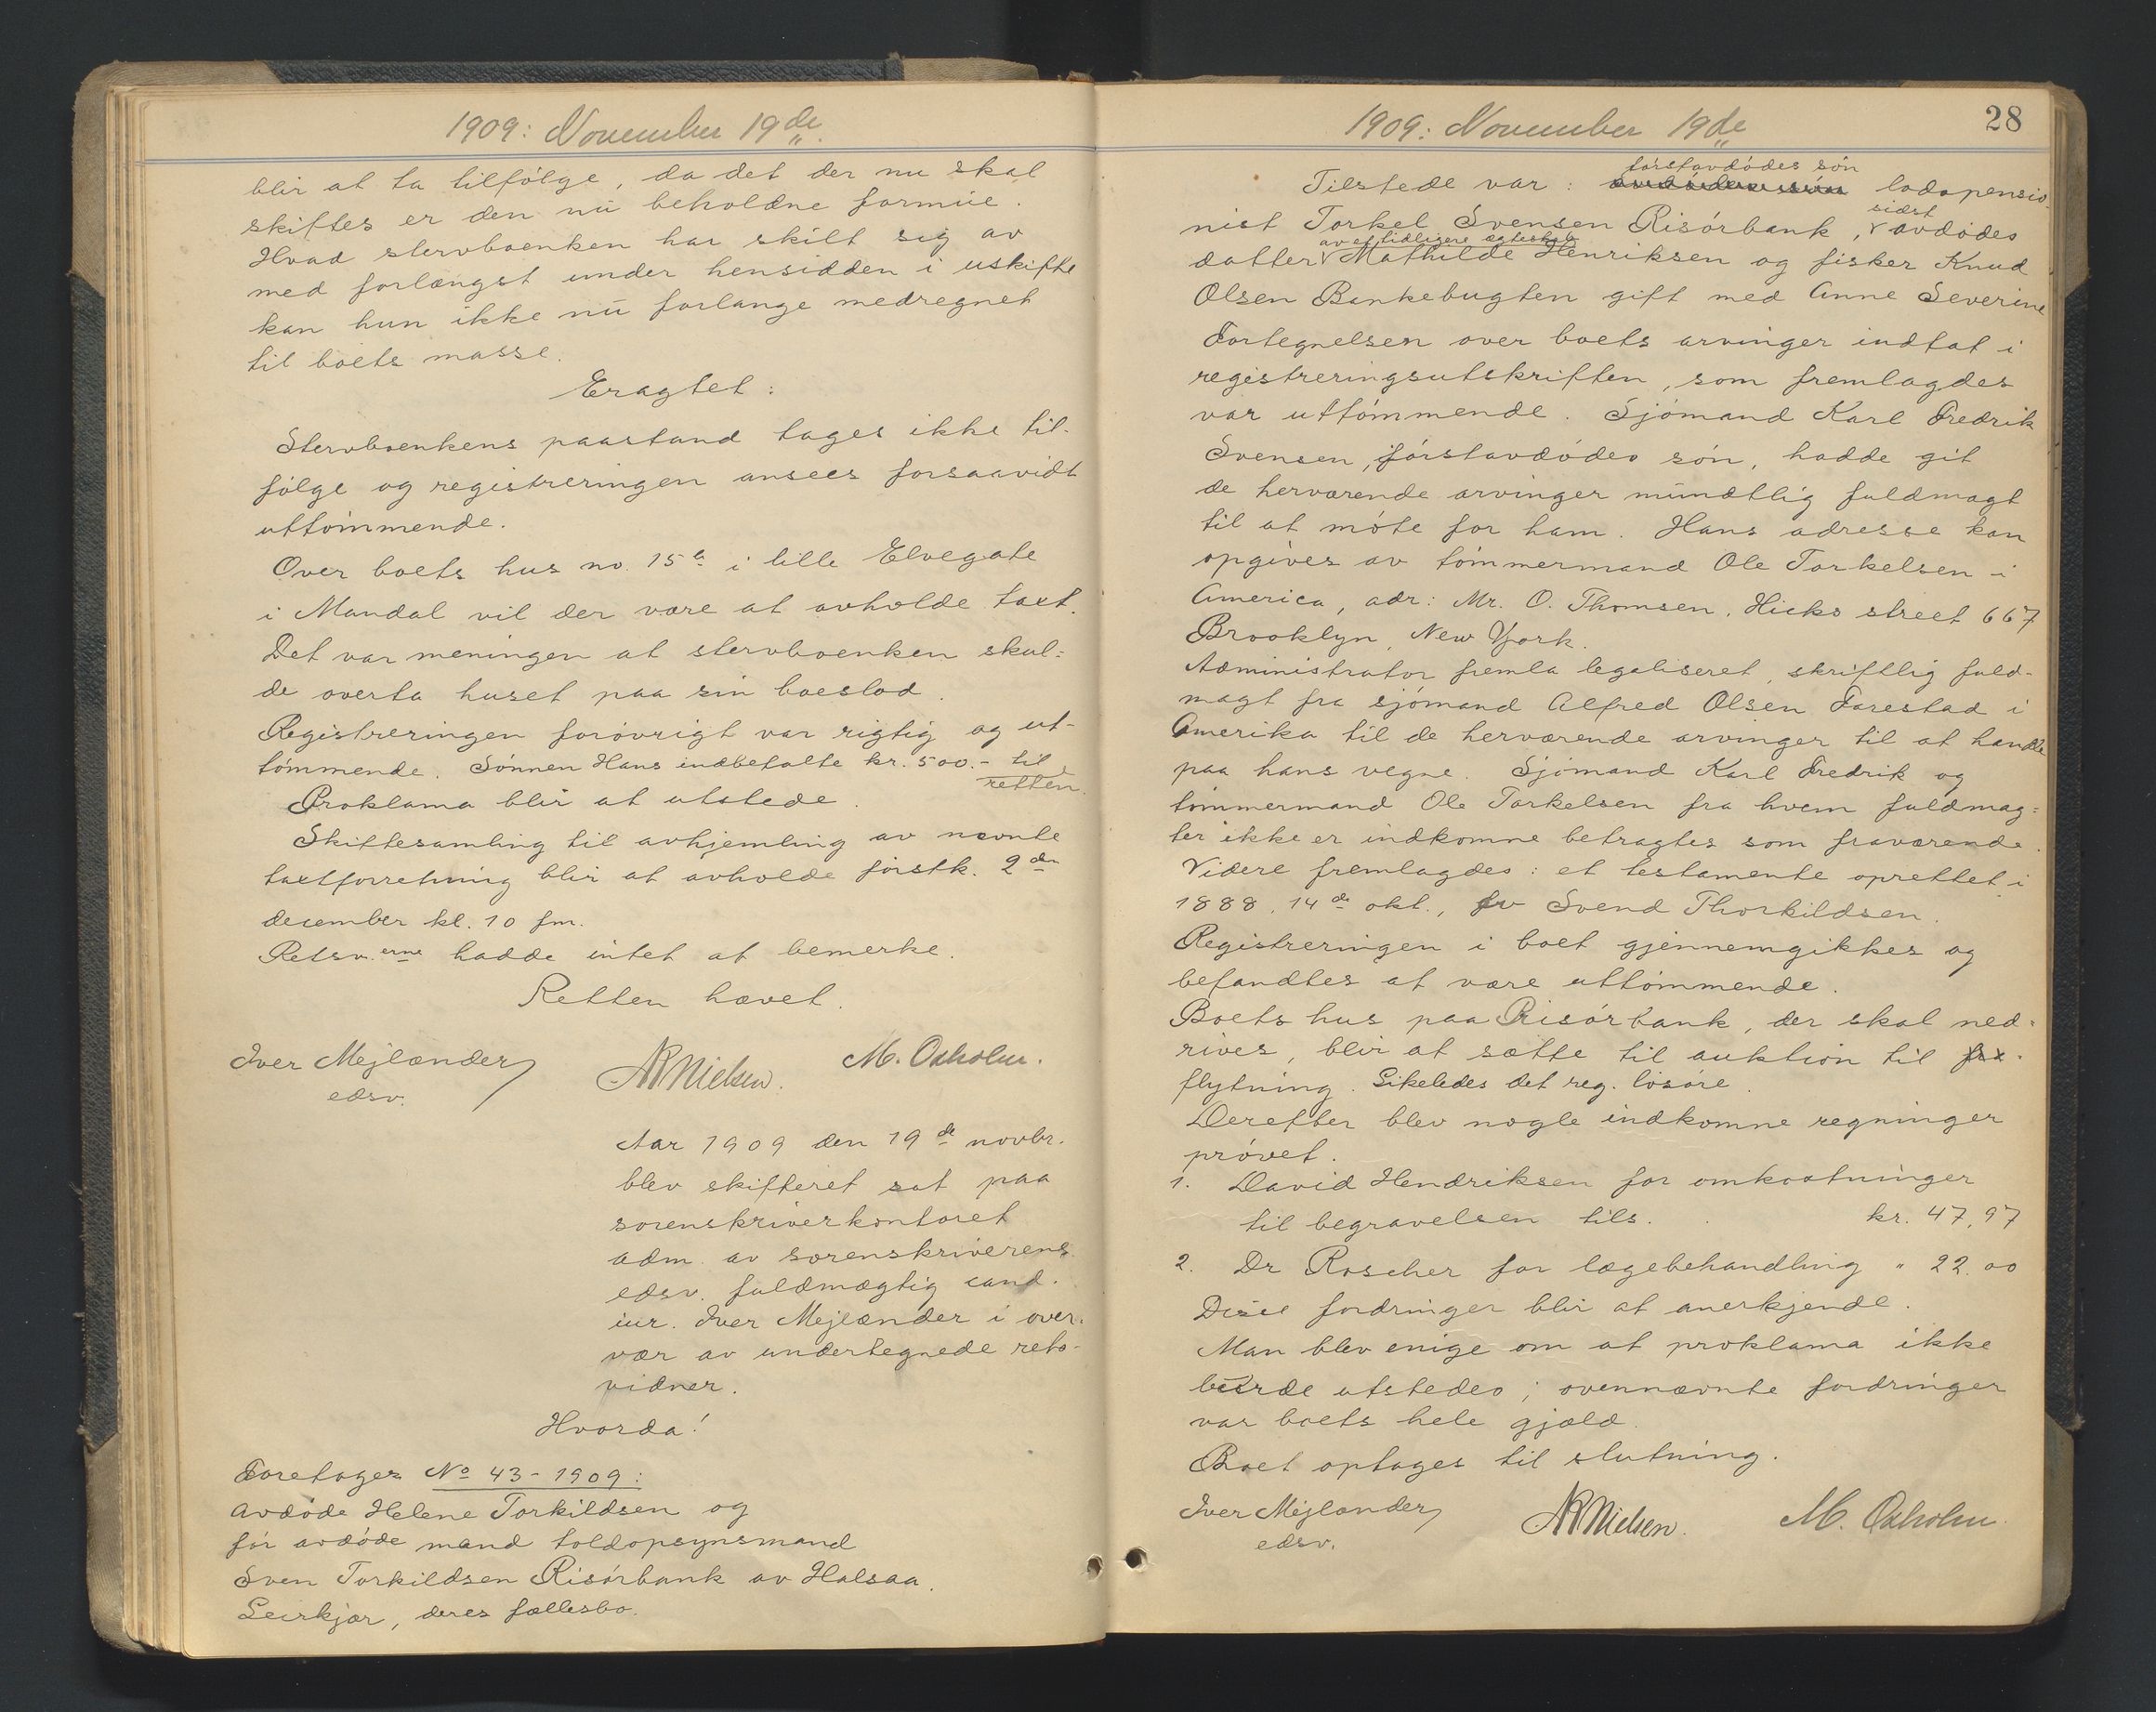 1909: November 19de
blir at ta tilfölge, da det der nu skal
skiftes er den nu beholdne formue.
Hvad stervboenken har skilt sig av
med forlængst under hensidden i uskifte
kan hun ikke nu forlange medregnet
til boets masse.
Eragtet:
Stervboenkens paastand tages ikke til-
fölge og registreringen ansees forsaavidt
uttömmende.
Over boets hus no. 15a i lille Elvegate
i Mandal vil der være at avholde taxt.
Det var meningen at stervboenken skul-
de overta huset paa sin boeslod.
Registreringen forövrigt var rigtig og ut-
tömmende. Sönnen Hans indbetalte kr. 500.- til
retten.
Proklama blir at utstede.
Skiftesamling til avhjemling av nævnte
taxtforretning blir at avholde förstk. 2den
december kl. 10 fm.
Retsv.erne hadde intet at bemerke.
Retten hævet.
Iver Mejlænder
edsv.
NRNielsen.
M. Oxholm.
Aar 1909 den 19de novbr.
blev skifteret sat paa
sorenskriverkontoret
adm. av sorenskriverens
edsv. fuldmægtig cand.
iur. Iver Mejlænder i over-
vær av undertegnede rets-
vidner.
Hvorda!
Foretages No 43-1909:
Avdöde Helene Torkildsen og
för avdöde mand toldopsynsmand
Sven Torkildsen Risörbank av Halsaa.
Leirkjær, deres fællesbo.
1909: November 19de
28
förstavdödes sön
Tilstede var: lodspensio-
sidst
nist Torkel Svensen Risörbank, avdödes
av et tidligere ægteskab
datter Mathilde Henriksen og fisker Knud
Olsen Bankebugten gift med Anne Severine
Fortegnelsen over boets arvinger indtat i
registreringsutskriften, som fremlagdes
var uttömmende. Sjömand Karl Fredrik
Svensen, förstavdödes sön, hadde git
de herværende arvinger mundtlig fuldmagt
til at möte for ham. Hans adresse kan
opgives av tömmermand Ole Torkelsen i
America, adr: Mr. O. Thomsen. Hicks street 667
Brooklyn, New York.
Administrator fremla legaliseret, skriftlig fuld-
magt fra sjömand Alfred Olsen Farestad i
Amerika til de herværende arvinger til at handle
paa hans vegne. Sjömand Karl Fredrik og
tömmermand Ole Torkelsen fra hvem fuldmag-
ter ikke er indkomne betragtes som fraværende.
Videre fremlagdes: et testamente oprettet i
1888, 14de okt., av Svend Thorkildsen.
Registreringen i boet gjennemgikkes og
befandtes at være uttömmende.
Boets hus paa Risörbank, der skal ned-
rives, blir at sætte til auktion til
flytning. Likeledes det reg. lösöre.
Derefter blev nogle indkomne regninger
prövet.
1. David Hendriksen for omkostninger
til begravelsen tils. kr. 47,97
2. Dr Roscher for lægebehandling " 22.00
Disse fordringer blir at anerkjende.
Man blev enige om at proklama ikke
burde utstedes; ovennævnte fordringer
var boets hele gjæld.
Boet optages til slutning.
Iver Mejlænder
edsv.
NRNielsen.
M. Oxholm.